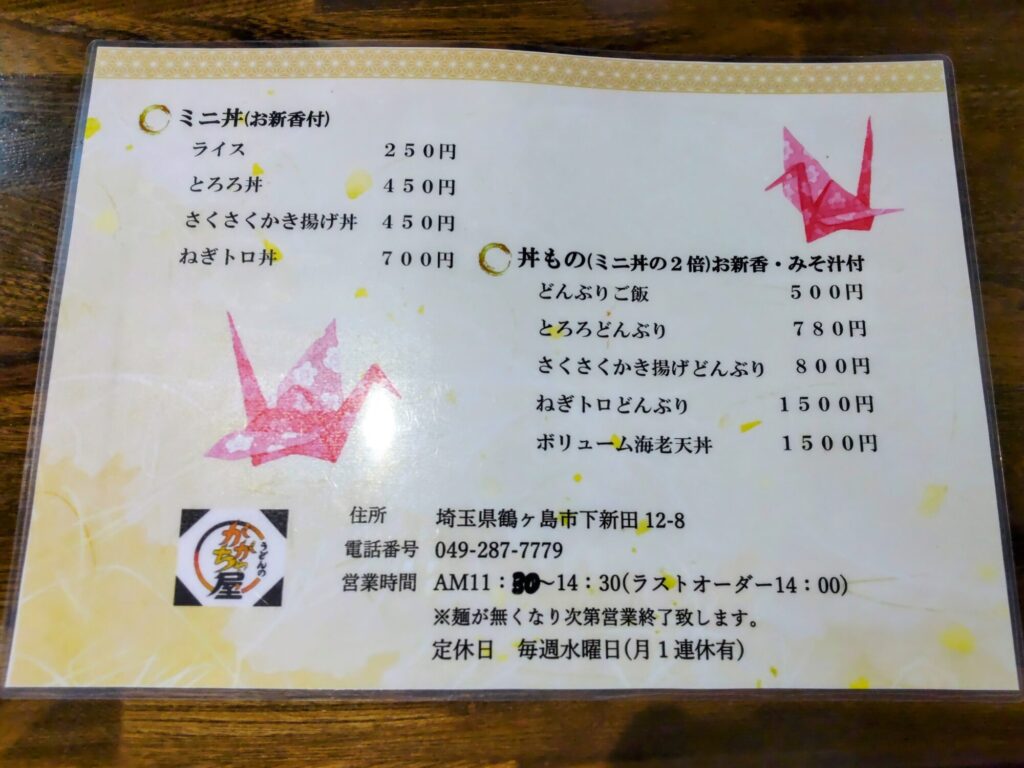 ミニ丼(お新香付)
ライス 250円
とろろ丼 450円
さくさくかき揚げ丼 450円
ねぎトロ丼 700円
丼もの(ミニ丼の2倍)お新香・みそ汁付
どんぶりご飯 500円
とろろどんぶり 780円
さくさくかき揚げどんぶり 800円
ねぎトロどんぶり 1500円
ボリューム海老天丼 1500円
うどんの
かかちゃ屋
住所 埼玉県鶴ヶ島市下新田12-8
電話番号 049-287-7779
営業時間 AM11：30～14：30(ラストオーダー14：00)
※麺が無くなり次第営業終了致します。
定休日 毎週水曜日(月1連休有)